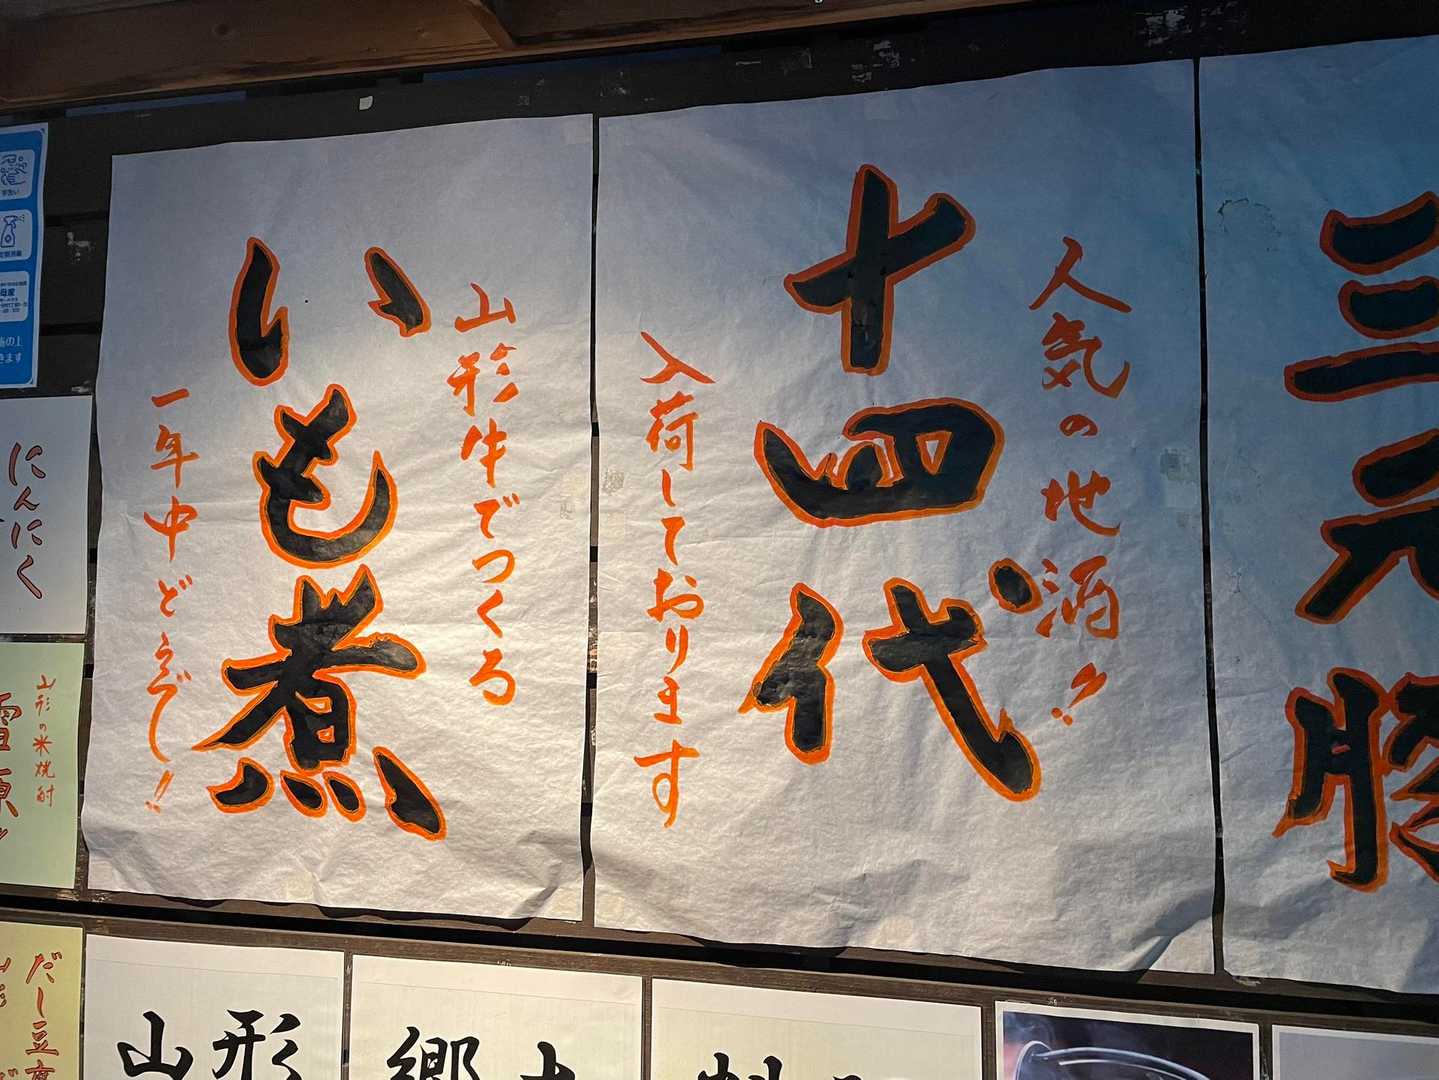 三元豚
人気の地酒!!
十四代
入荷しております
山形牛でつくる
いも煮
一年中どうぞ!!
にんにく
山形の米焼酎
雪原
だし豆腐
山形
郷土
料理
手洗い